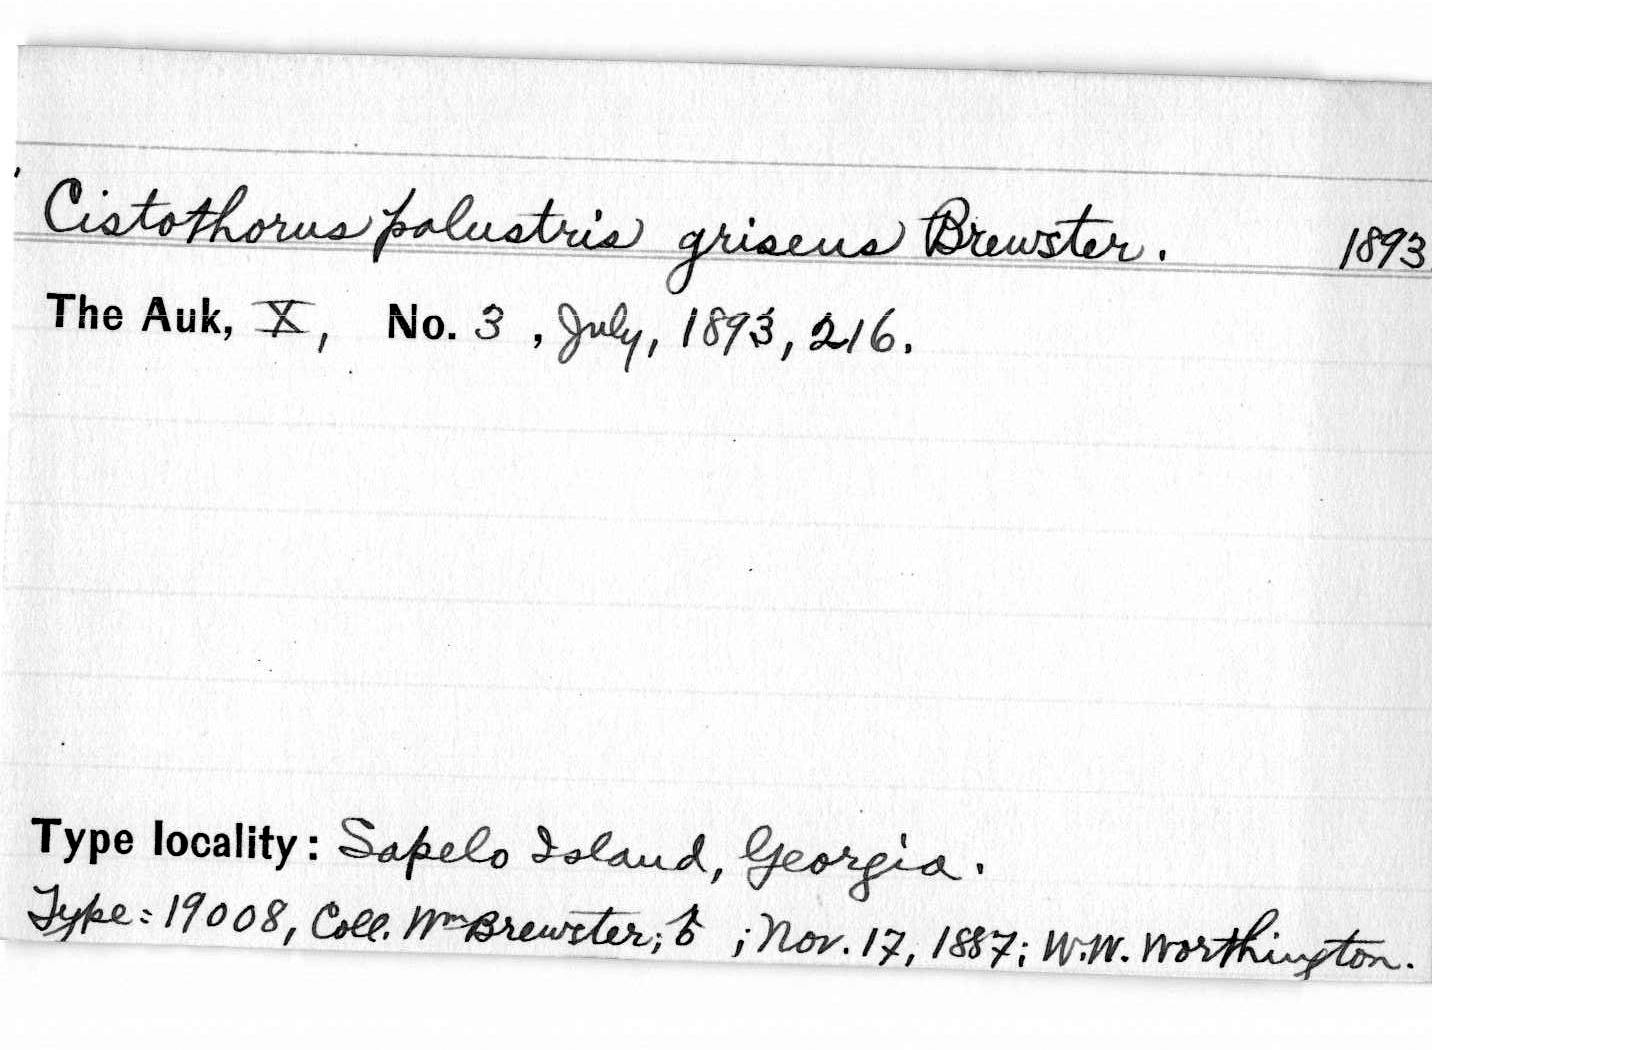 Cistothorus palustris griseus Brewster. 1893
The Auk, X, No. 3, July, 1893, 216.
Type locality: Sapelo Island, Georgia.
Type: 19008, Coll. Wm Brewster; ♂ ; Nov. 17, 1887; W.W. Worthington.